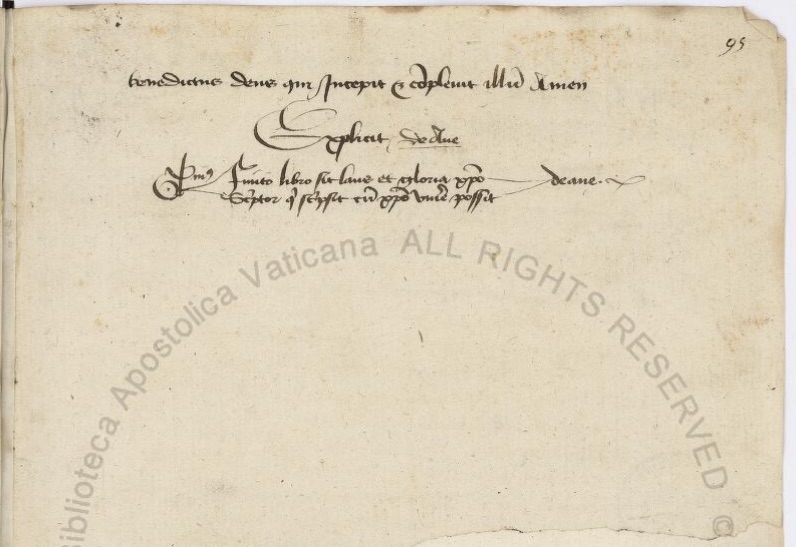 95
benedictus deus qui Incepit & cōpleuit illū Amen
Explicit de Aue
Finito libro sit laus et gloria xpō de aue.
Scptor q̄ scpsit cū xpō viuē possit
© Biblioteca Apostolica Vaticana ALL RIGHTS RESERVED ©